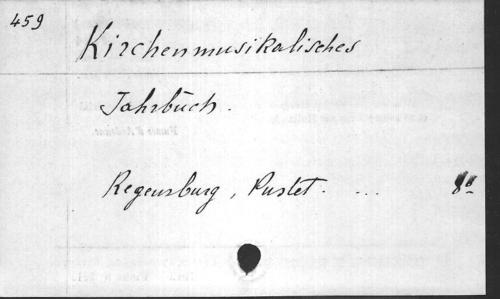 459
Kirchenmusikalisches
Jahrbuch.
Regensburg, Pustet. ... 8°